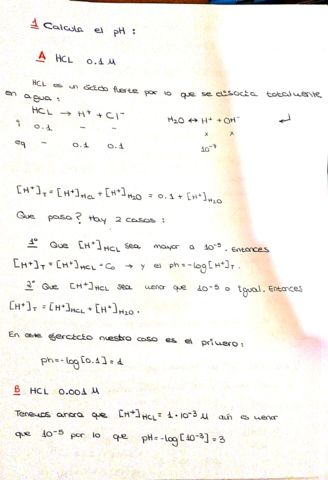 1 Calcula el pH :
A HCL 0.1 M
HCL es un ácido fuerte por lo que se disocia totalmente
en agua :
HCL → H⁺ + Cl⁻ H₂O ↔ H⁺ + OH⁻
i 0.1 - - x x
eq - 0.1 0.1 10⁻⁷
[H⁺]T = [H⁺]HCL + [H⁺]H₂O = 0.1 + [H⁺]H₂O
Que pasa? Hay 2 casos :
1º Que [H⁺]HCL sea mayor a 10⁻⁵. Entonces
[H⁺]T = [H⁺]HCL = C₀ → y el ph = -log[H⁺]T.
2º Que [H⁺]HCL sea menor que 10⁻⁵ o igual. Entonces
[H⁺]T = [H⁺]HCL + [H⁺]H₂O.
En este ejercicio nuestro caso es el primero :
ph = -log[0.1] = 1
B HCL 0.001 M
Tenemos ahora que [H⁺]HCL = 1·10⁻³ M aún es menor
que 10⁻⁵ por lo que pH = -log[10⁻³] = 3